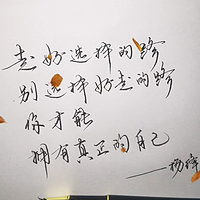 走好选择的路
别选择好走的路
你才能
拥有真正的自己
——杨绛